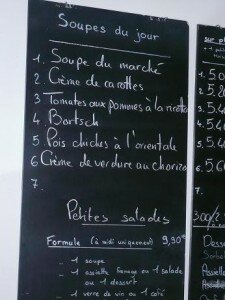 Soupes du jour
1. Soupe du marché
2. Crème de carottes
3 Tomates aux pommes à la ricotta
4. Bortsch
5. Pois chiches à l'orientale
6 Crème de verdure au chorizo
7.
Petites salades
Formule (à midi uniquement) 9,90€
- 1 soupe
- 1 assiette fromage ou 1 salade
ou 1 dessert
- 1 verre de vin ou 1 café
1. 50
2. 5.8
3. 5.4
4. 5.4
5. 5.6
6. 5.60
7.